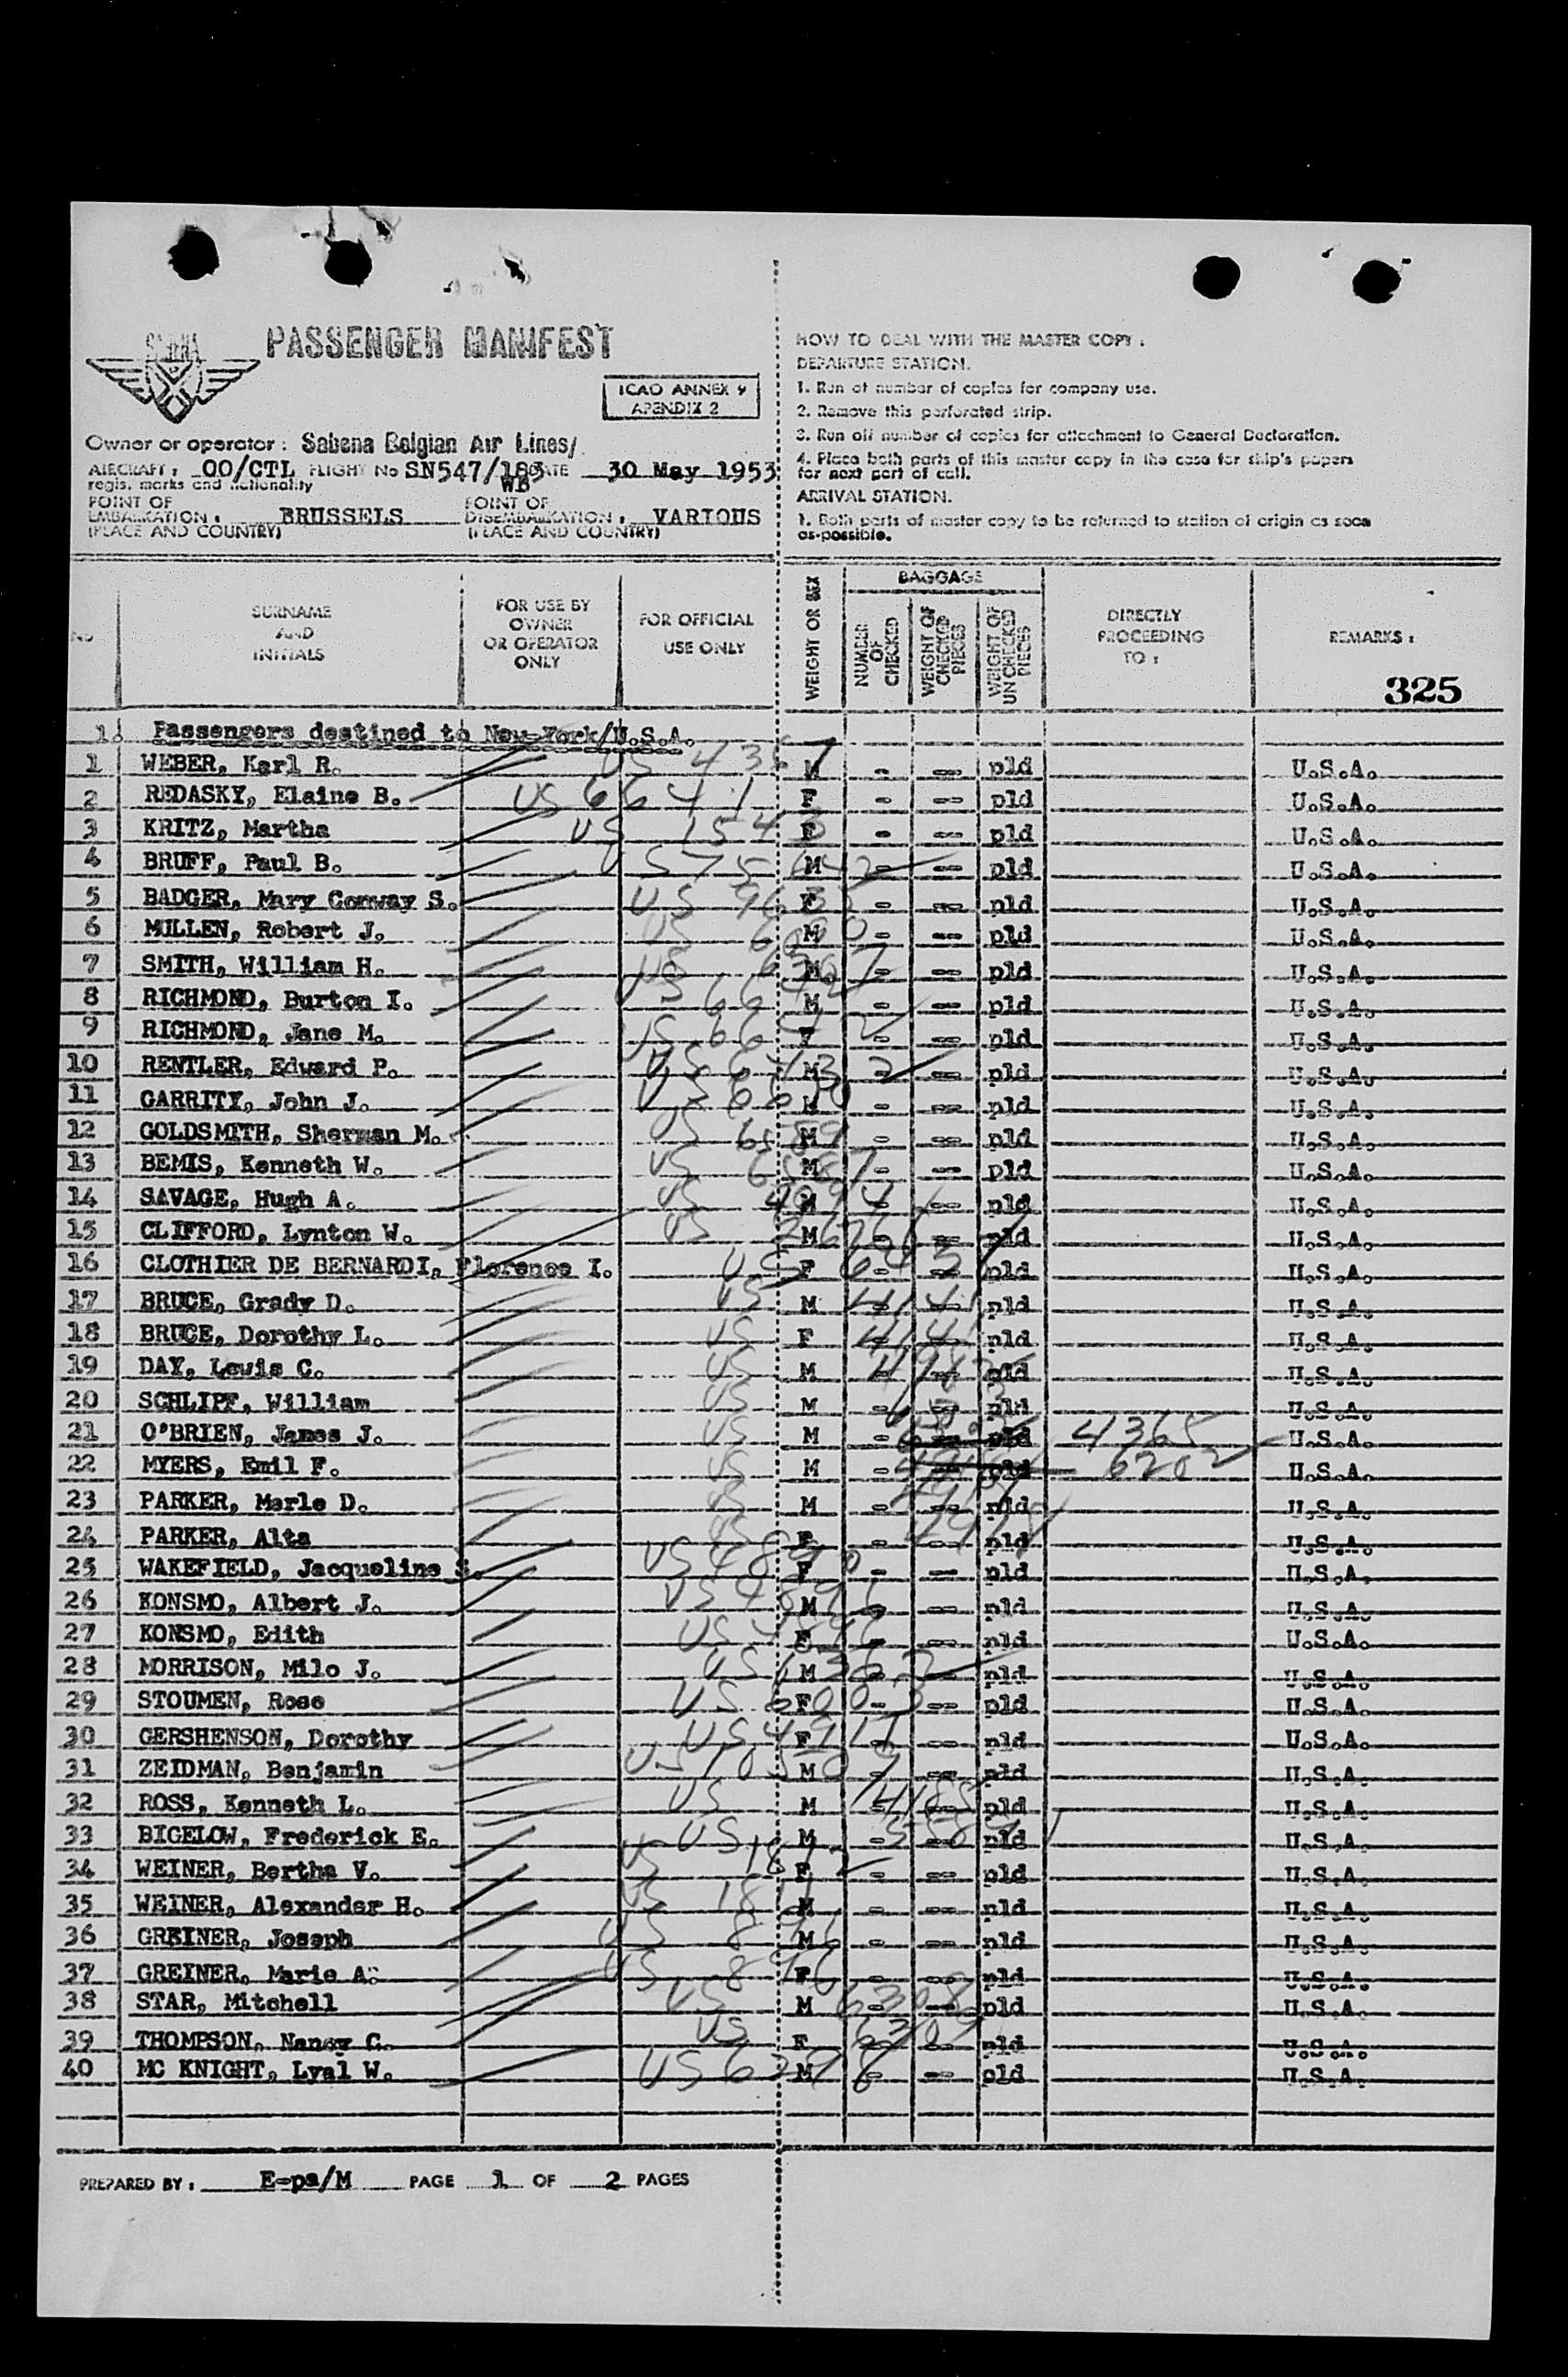 SABENA
PASSENGER MANIFEST
ICAO ANNEX 9
APENDIX 2
Owner or operator : Sabena Belgian Air Lines/
AIRCRAFT : OO/CTL FLIGHT No SN547/183 DATE 30 May 1953
regis. marks and nationality WB
POINT OF EMBARKATION : BRUSSELS POINT OF DISEMBARKATION : VARIOUS
(PLACE AND COUNTRY) (PLACE AND COUNTRY)
HOW TO DEAL WITH THE MASTER COPY :
DEPARTURE STATION.
1. Run of number of copies for company use.
2. Remove this perforated strip.
3. Run off number of copies for attachment to General Declaration.
4. Place both parts of this master copy in the case for ship's papers
for next port of call.
ARRIVAL STATION.
1. Both parts of master copy to be returned to station of origin as soon
as possible.
No SURNAME AND INITIALS FOR USE BY OWNER OR OPERATOR ONLY FOR OFFICIAL USE ONLY WEIGHT OR SEX BAGGAGE NUMBER OF CHECKED WEIGHT OF CHECKED PIECES WEIGHT OF UNCHECKED PIECES DIRECTLY PROCEEDING TO : REMARKS :
325
1. Passengers destined to New-York/U.S.A.
1 WEBER, Karl R. US M - -- pld U.S.A.
2 REDASKY, Elaine B. US 6641 F - -- pld U.S.A.
3 KRITZ, Martha US F - -- pld U.S.A.
4 BRUFF, Paul B. US M - -- pld U.S.A.
5 BADGER, Mary Conway S. US F - -- pld U.S.A.
6 MULLEN, Robert J. US M - -- pld U.S.A.
7 SMITH, William H. US M - -- pld U.S.A.
8 RICHMOND, Burton I. US M - -- pld U.S.A.
9 RICHMOND, Jane M. US F - -- pld U.S.A.
10 RENTLER, Edward P. US M - -- pld U.S.A.
11 GARRITY, John J. US M - -- pld U.S.A.
12 GOLDSMITH, Sherman M. US M - -- pld U.S.A.
13 BEMIS, Kenneth W. US M - -- pld U.S.A.
14 SAVAGE, Hugh A. US M - -- pld U.S.A.
15 CLIFFORD, Lynton W. US M - -- pld U.S.A.
16 CLOTHIER DE BERNARDI, Florence I. US F - -- pld U.S.A.
17 BRUCE, Grady D. US M - -- pld U.S.A.
18 BRUCE, Dorothy L. US F - -- pld U.S.A.
19 DAY, Lewis C. US M - -- pld U.S.A.
20 SCHLIPF, William US M - -- pld U.S.A.
21 O'BRIEN, James J. US M - -- pld 4365 U.S.A.
22 MYERS, Emil F. US M - -- pld 6202 U.S.A.
23 PARKER, Marle D. US M - -- pld U.S.A.
24 PARKER, Alta US F - -- pld U.S.A.
25 WAKEFIELD, Jacqueline S. US F - -- pld U.S.A.
26 KONSMO, Albert J. US M - -- pld U.S.A.
27 KONSMO, Edith US F - -- pld U.S.A.
28 MORRISON, Milo J. US M - -- pld U.S.A.
29 STOUMEN, Rose US F - -- pld U.S.A.
30 GERSHENSON, Dorothy US F - -- pld U.S.A.
31 ZEIDMAN, Benjamin US M - -- pld U.S.A.
32 ROSS, Kenneth L. US M - -- pld U.S.A.
33 BIGELOW, Frederick E. US M - -- pld U.S.A.
34 WEINER, Bertha V. US F - -- pld U.S.A.
35 WEINER, Alexander H. US M - -- pld U.S.A.
36 GREINER, Joseph US M - -- pld U.S.A.
37 GREINER, Marie A. US F - -- pld U.S.A.
38 STAR, Mitchell US M - -- pld U.S.A.
39 THOMPSON, Nancy C. US F - -- pld U.S.A.
40 MC KNIGHT, Lyal W. US M - -- pld U.S.A.
PREPARED BY : E-pa/M PAGE 1 OF 2 PAGES